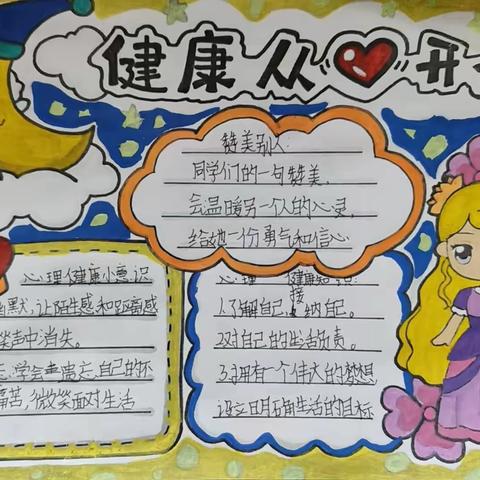 健康从 开
赞美别人:
同学们的一句赞美,
会温暖另一个人的心灵,
给她一份勇气和信心
心理健康小意识
默,让陌生感和距离感
笑声中消失。
学会遗忘自己的怀
痛苦,微笑面对生活
心理 健康知识:
1.了解自己,接纳自己。
2.对自己的生活负责。
3.拥有一个伟大的梦想
设立明确生活的目标